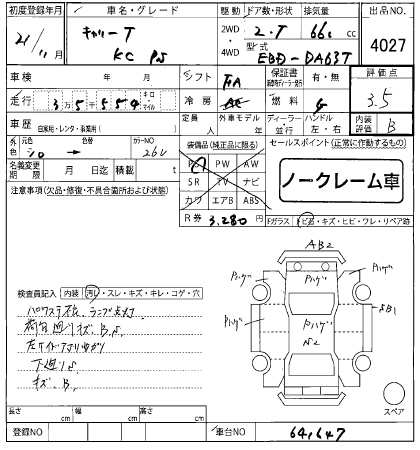 初度登録年月 車名・グレード 駆動 ドア数・形状 排気量 出品NO.
21/11月 キャリーT 2WD・4WD 2・T 66L cc 4027
KC PS 型式 EBD-DA63T
車検 年 月 シフト FA 保証書 有・無 評価点
走行 3万5千554 キロ マイル 冷房 AC 燃料 G 3.5
車歴 自家用・レンタ・事業用( ) 定員 人 外車モデル 年 ディーラー 並行 ハンドル 左・右 内装評価 B
外色 元色 シロ 色替 カラーNO 26U 装備品(純正品に限る) セールスポイント(正常に作動するもの)
名義変更期限 月 日迄 積載 t PS PW AW
SR TV ナビ ノークレーム車
注意事項(欠品・修復・不具合箇所および状態) カワ エアB ABS
R券 3,280円 Fガラス トビ石・キズ・ヒビ・ワレ・リペア跡
AB2
検査員記入 内装 汚れ・スレ・キズ・キレ・コゲ・穴
パワステ不、ランプ点灯
荷台廻りキズ、B,S
下廻りS
キズ、B,
Pハゲ Pハゲ Pハゲ
Pハゲ Pハゲ SB1
S2
Pハゲ Pハゲ
スペア
長さ cm 幅 cm 高さ cm
登録NO 車台NO 641647